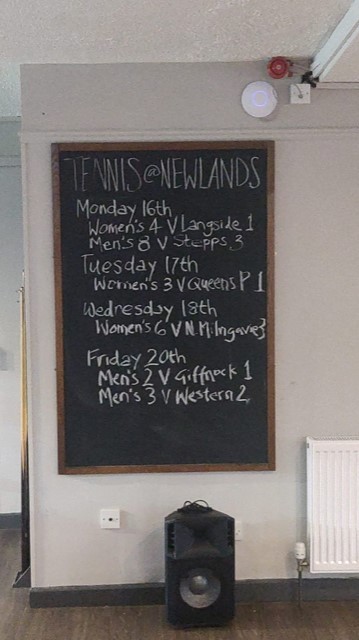 TENNIS@NEWLANDS
Monday 16th
Women's 4 V Langside 1
Men's 8 V Stepps 3
Tuesday 17th
Women's 3 V Queens P 1
Wednesday 18th
Women's 6 V N.Milngavie 3
Friday 20th
Men's 2 V Giffnock 1
Men's 3 V Western 2